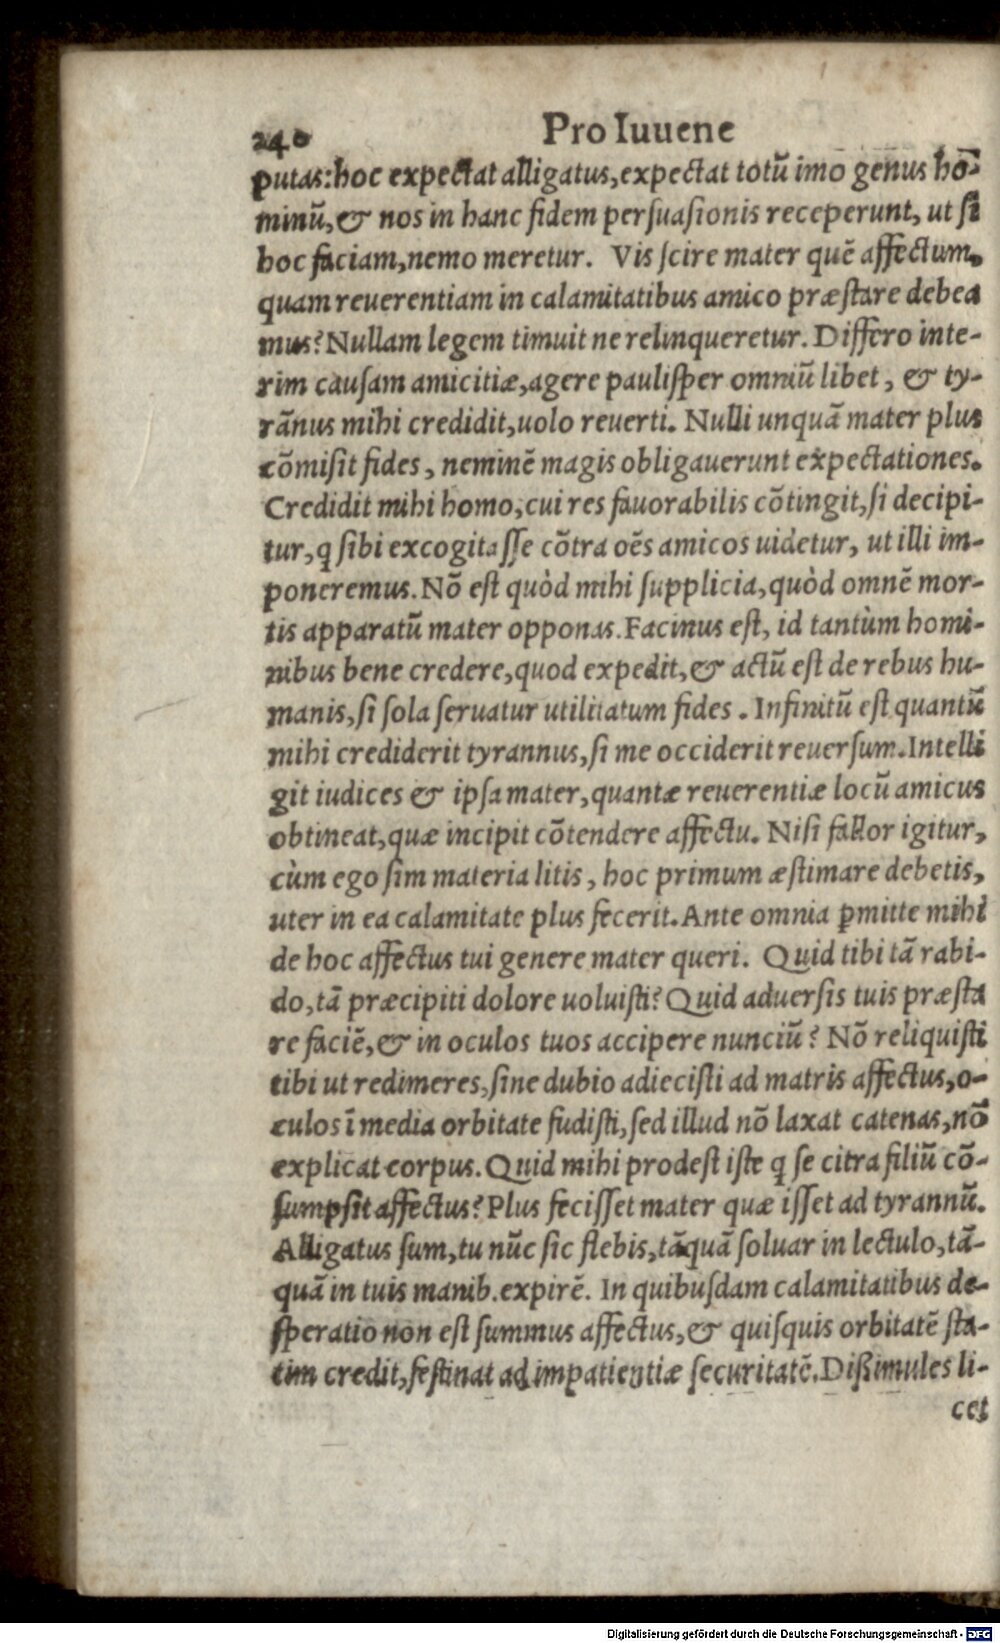 240 Pro Iuuene
putas: hoc expectat alligatus, expectat totũ imo genus hõ-
minũ, & nos in hanc fidem persuasionis receperunt, ut si
hoc faciam, nemo meretur. Vis scire mater quẽ affectum,
quam reuerentiam in calamitatibus amico præstare debea
mus? Nullam legem timuit ne relinqueretur. Differo inte-
rim causam amicitiæ, agere paulisper omniũ libet, & ty-
rãnus mihi credidit, uolo reuerti. Nulli unquã mater plus
cõmisit fides, neminẽ magis obligauerunt expectationes.
Credidit mihi homo, cui res fauorabilis cõtingit, si decipi-
tur, q sibi excogitasse cõtra oẽs amicos uidetur, ut illi im-
poneremus. Nõ est quòd mihi supplicia, quòd omnẽ mor-
tis apparatũ mater opponas. Facinus est, id tantùm homi-
nibus bene credere, quod expedit, & actũ est de rebus hu-
manis, si sola seruatur utilitatum fides. Infinitũ est quantũ
mihi crediderit tyrannus, si me occiderit reuersum. Intelli
git iudices & ipsa mater, quantæ reuerentiæ locũ amicus
obtineat, quæ incipit cõtendere affectu. Nisi fallor igitur,
cùm ego sim materia litis, hoc primum æstimare debetis,
uter in ea calamitate plus fecerit. Ante omnia ꝑmitte mihi
de hoc affectus tui genere mater queri. Quid tibi tã rabi-
do, tã præcipiti dolore uoluisti? Quid aduersis tuis præsta
re faciẽ, & in oculos tuos accipere nunciũ? Nõ reliquisti
tibi ut redimeres, sine dubio adiecisti ad matris affectus, o-
culos ĩ media orbitate fudisti, sed illud nõ laxat catenas, nõ
explicat corpus. Quid mihi prodest iste q se citra filiũ cõ-
sumpsit affectus? Plus fecisset mater quæ isset ad tyrannũ.
Alligatus sum, tu nũc sic flebis, tãquã soluar in lectulo, tã-
quã in tuis manib. expirẽ. In quibusdam calamitatibus de-
speratio non est summus affectus, & quisquis orbitatẽ sta-
tim credit, festinat ad impatientiæ securitatẽ. Dißimules li-
cet
Digitalisierung gefördert durch die Deutsche Forschungsgemeinschaft - DFG